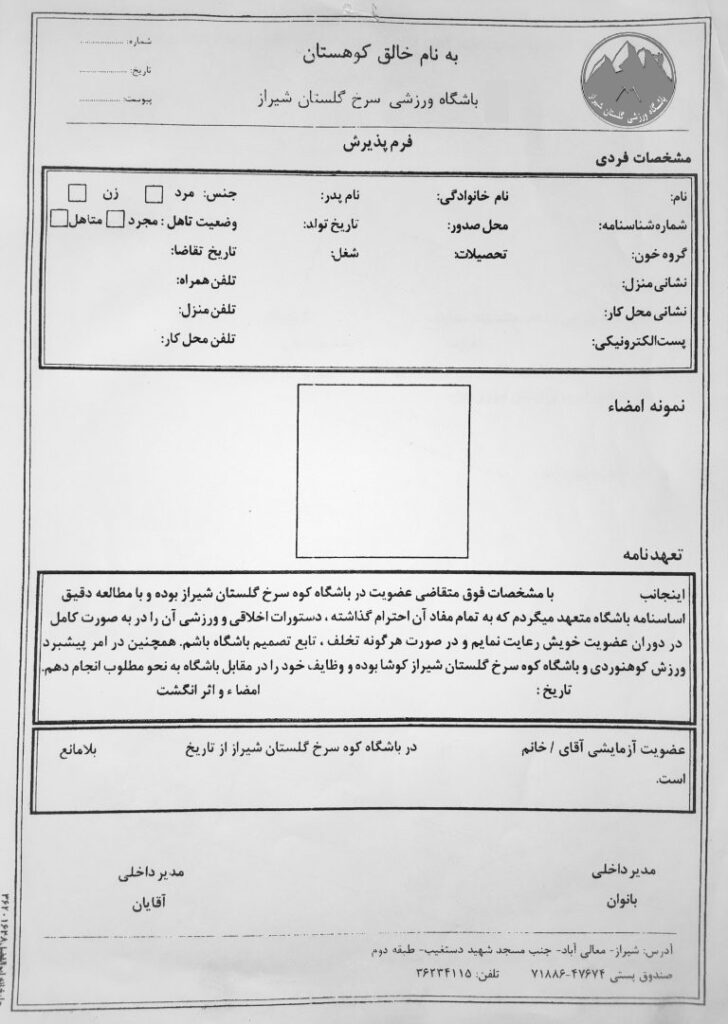 به نام خالق کوهستان
باشگاه ورزشی سرخ گلستان شیراز
باشگاه ورزشی گلستان شیراز
شماره: ....................
تاریخ: ....................
پیوست: ....................
فرم پذیرش
مشخصات فردی
نام: نام خانوادگی: نام پدر: جنس: مرد زن
شماره شناسنامه: محل صدور: تاریخ تولد: وضعیت تاهل: مجرد متاهل
گروه خون: تحصیلات: شغل: تاریخ تقاضا:
نشانی منزل: تلفن همراه:
نشانی محل کار: تلفن منزل:
پست الکترونیکی: تلفن محل کار:
نمونه امضاء
تعهدنامه
اینجانب با مشخصات فوق متقاضی عضویت در باشگاه کوه سرخ گلستان شیراز بوده و با مطالعه دقیق
اساسنامه باشگاه متعهد میگردم که به تمام مفاد آن احترام گذاشته ، دستورات اخلاقی و ورزشی آن را در به صورت کامل
در دوران عضویت خویش رعایت نمایم و در صورت هرگونه تخلف ، تابع تصمیم باشگاه باشم. همچنین در امر پیشبرد
ورزش کوهنوردی و باشگاه کوه سرخ گلستان شیراز کوشا بوده و وظایف خود را در مقابل باشگاه به نحو مطلوب انجام دهم.
تاریخ : امضاء و اثر انگشت
عضویت آزمایشی آقای / خانم در باشگاه کوه سرخ گلستان شیراز از تاریخ بلامانع
است.
مدیر داخلی مدیر داخلی
بانوان آقایان
آدرس: شیراز- معالی آباد- جنب مسجد شهید دستغیب- طبقه دوم
صندوق پستی ۴۷۶۷۴-۷۱۸۸۶ تلفن: ۳۶۲۳۴۱۱۵